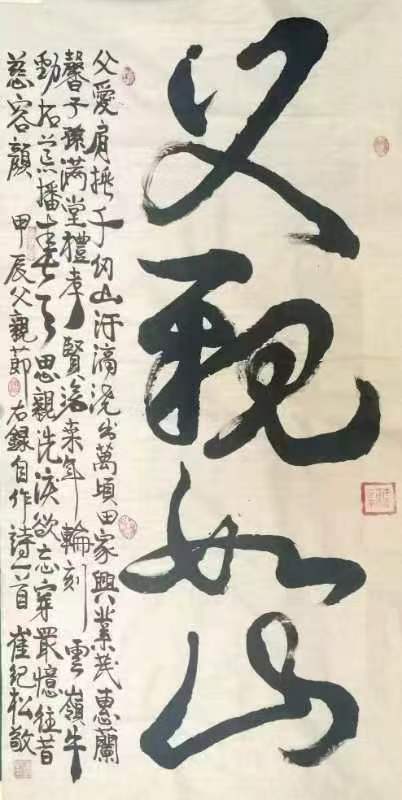 父親如山
父愛肩挑千仞山汗滴澆出萬頃田家興業茂惠蘭
馨子孫滿堂禮孝賢滄桑年輪刻雲嶺牛
動播春天思親洗淚欲忘穿最憶往昔
慈容顏 甲辰父親節 右錄自作詩一首 崔紀松敬